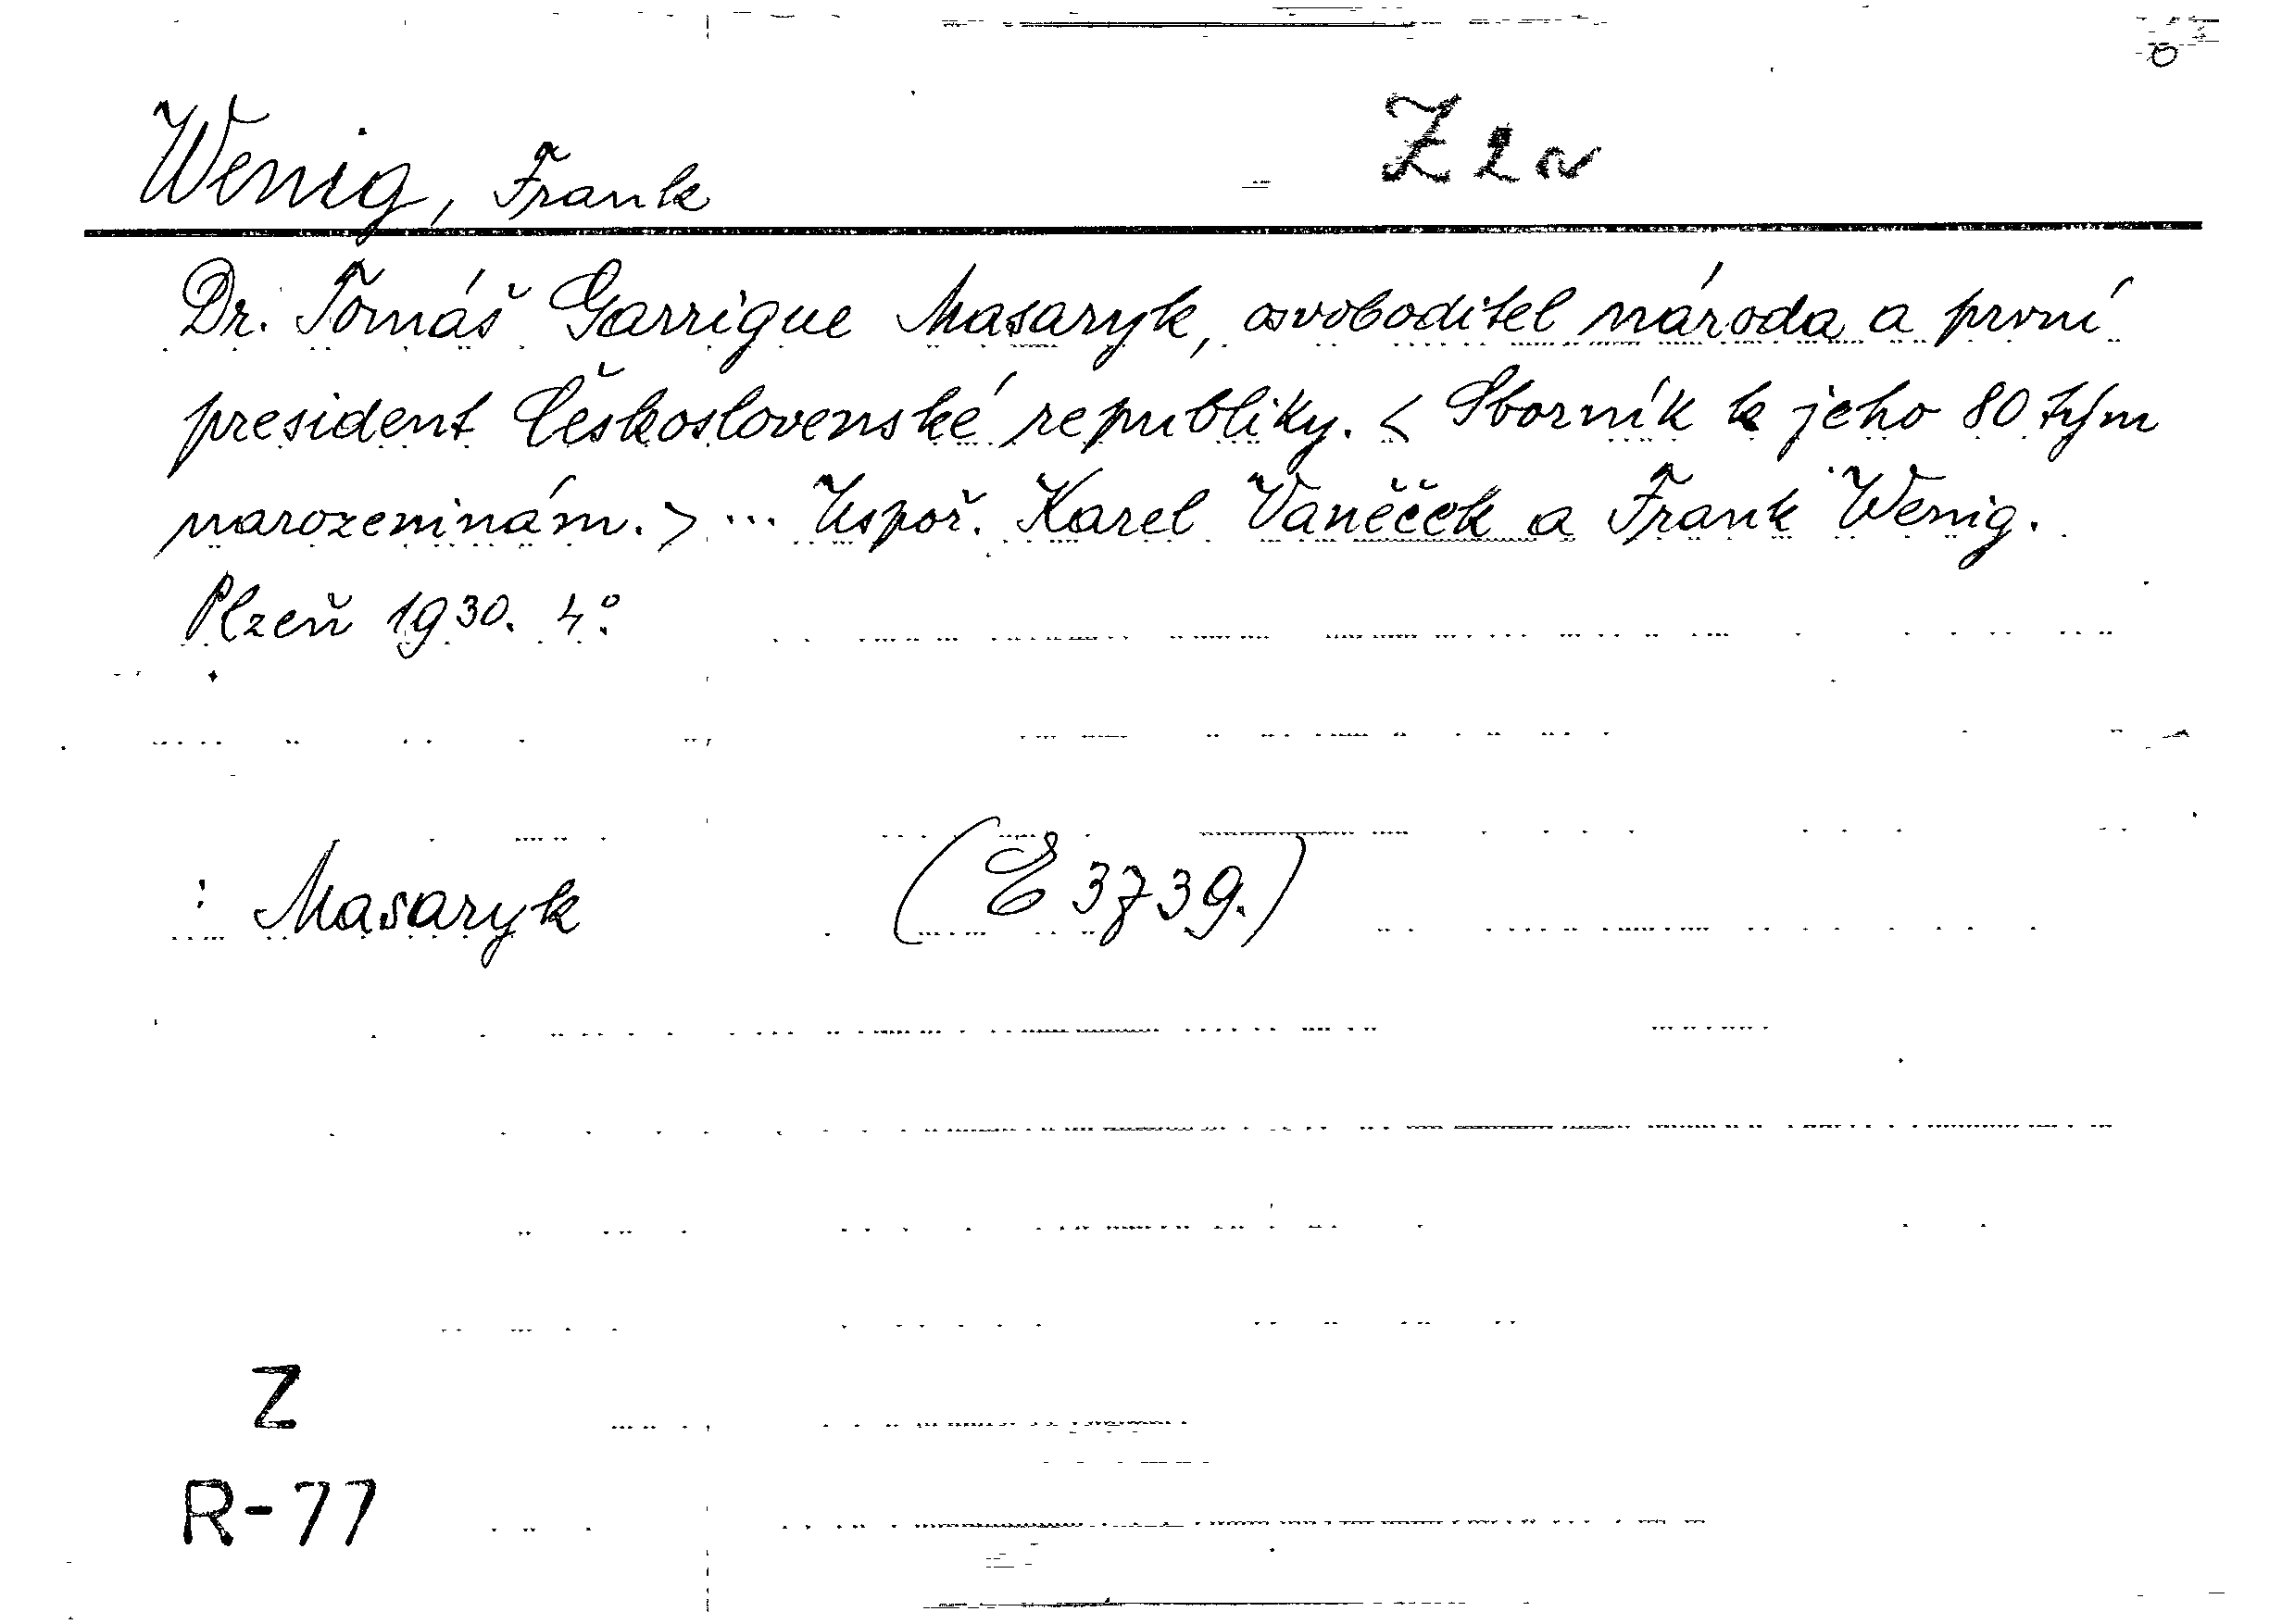 Wenig, Frank Z 2a
Dr. Tomáš Garrigue Masaryk, osvoboditel národa a první
president Československé republiky. < Sborník k jeho 80 tým
narozeninám. > ... Uspoř. Karel Vaněček a Frank Wenig.
Plzeň 1930. 4°.
: Masaryk (E 3739.)
Z
R-77